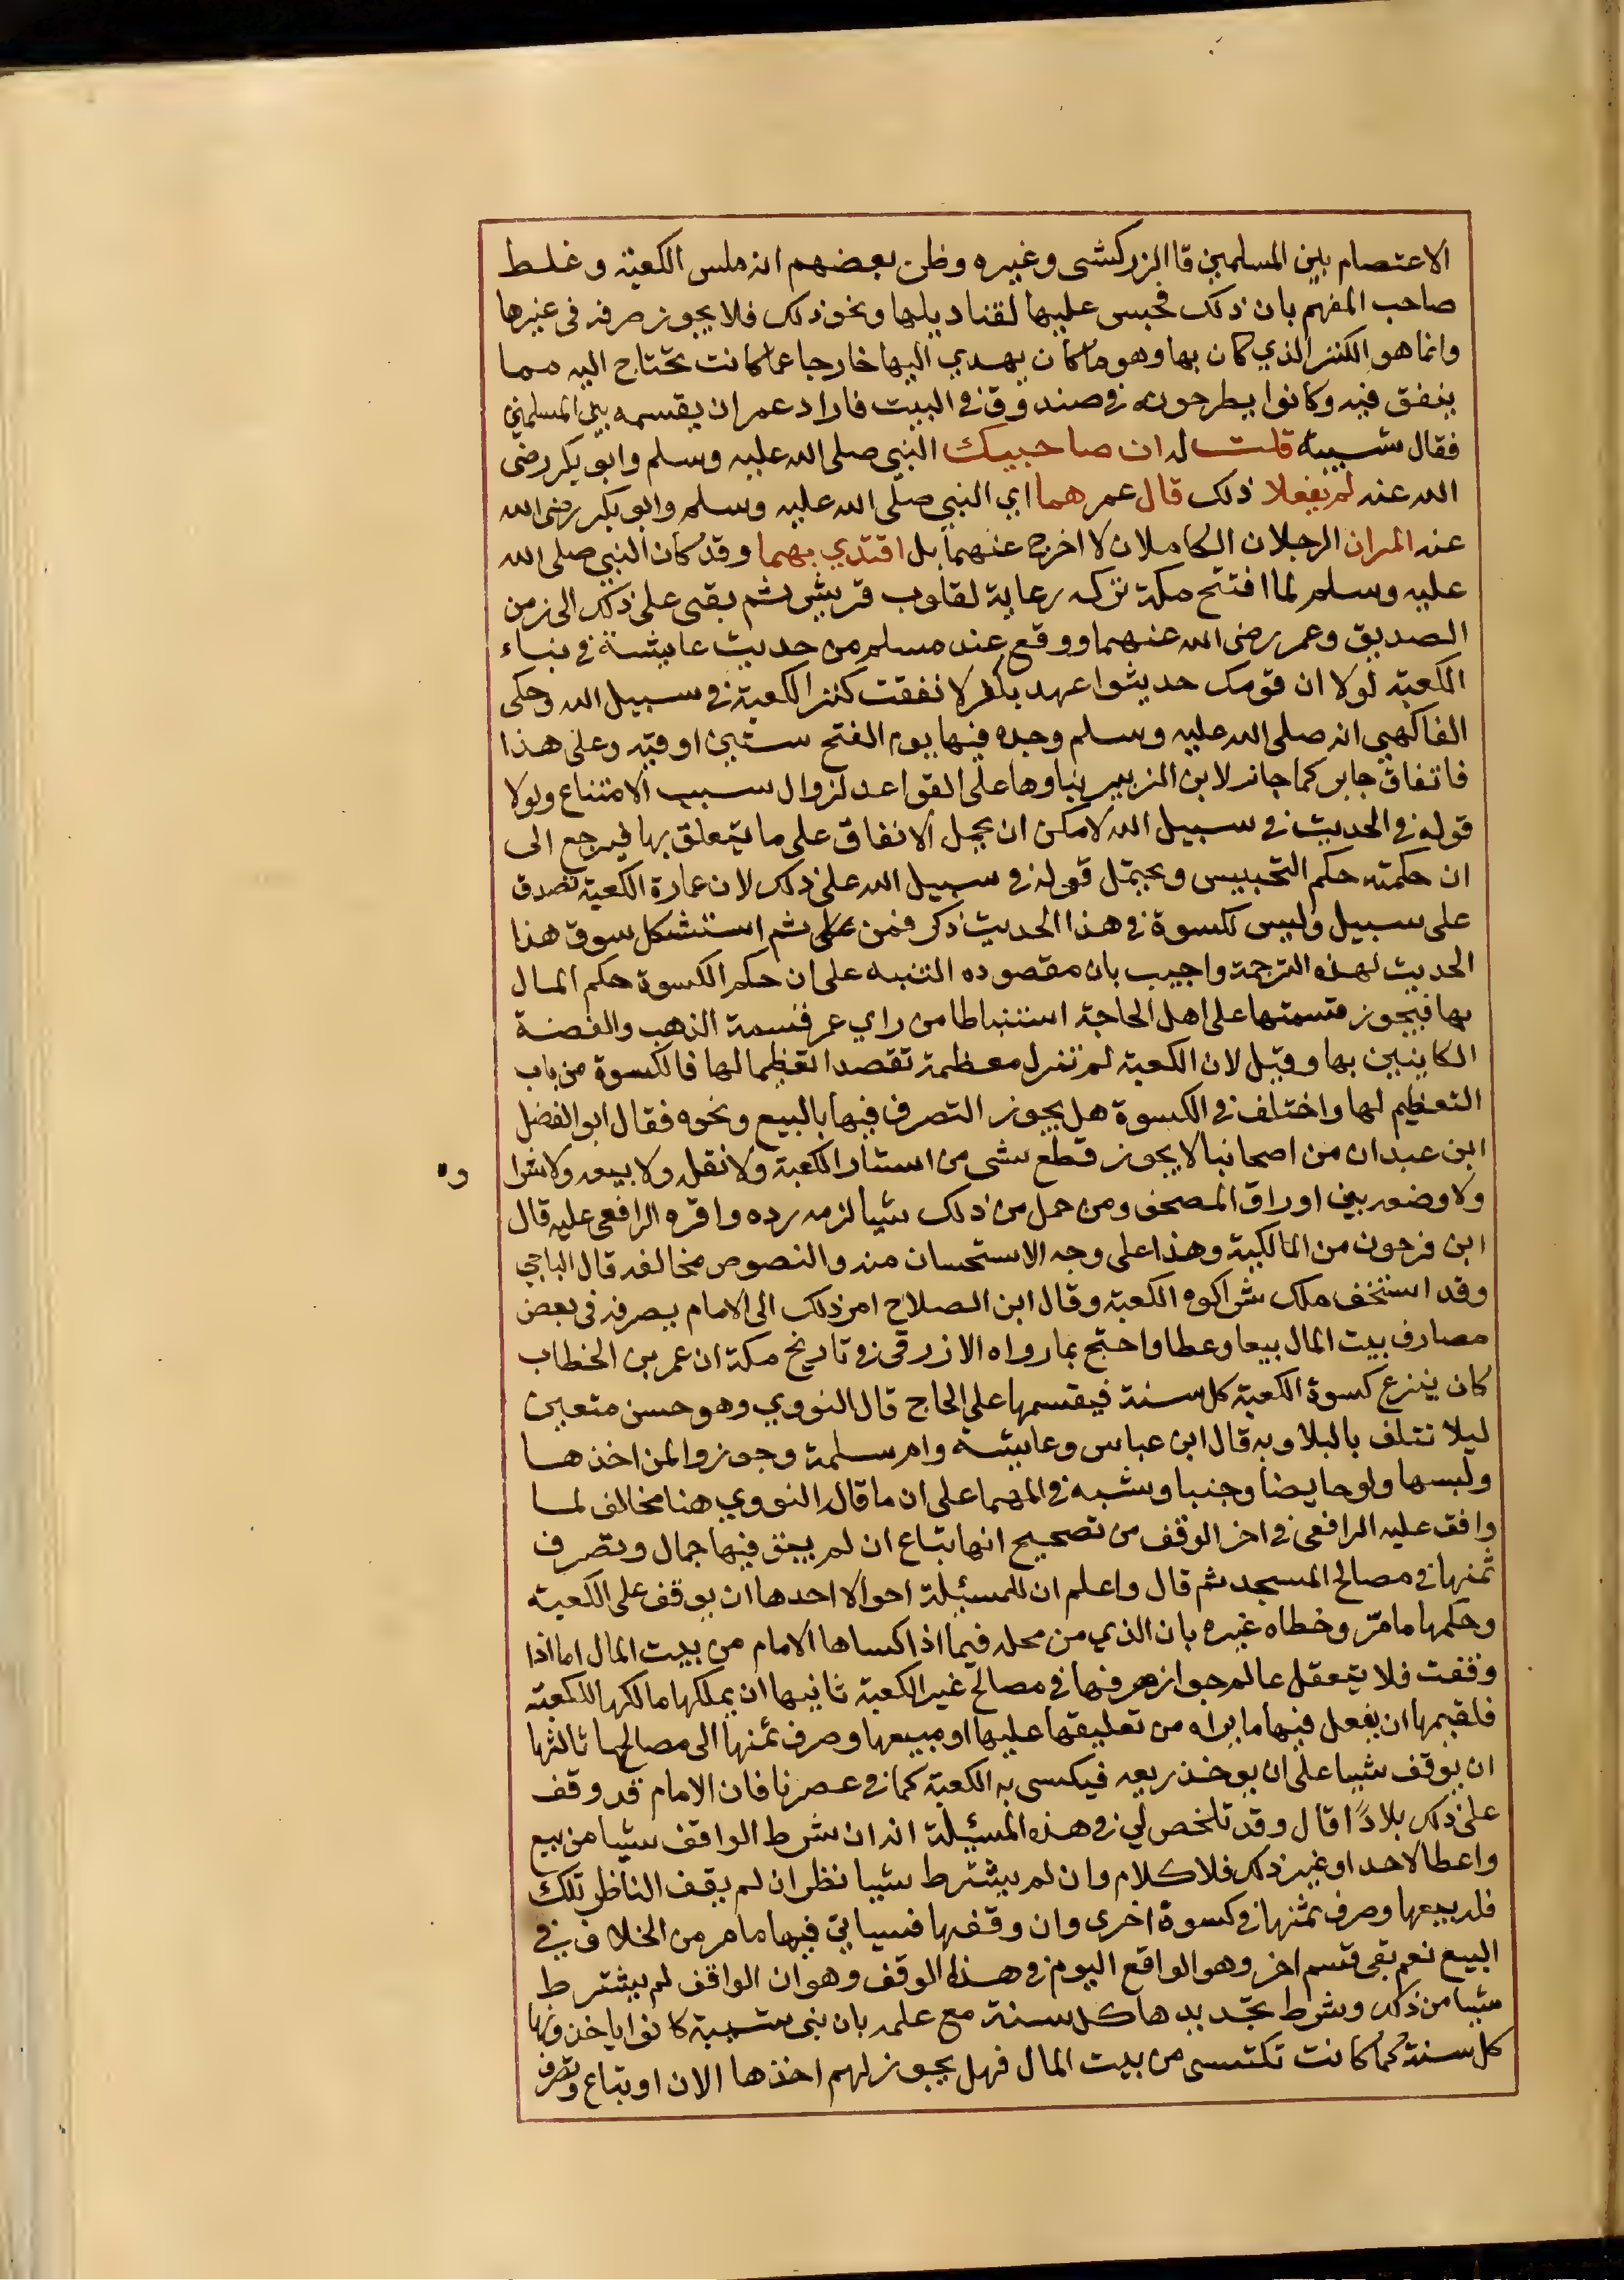 الاعتصام بين المسلمين قا الزركشى وغيره وظن بعضهم انه ملس الكعبة وغلط
صاحب المفهم بان ذلك محبس عليها لقناديلها ونحو ذلك فلا يجوز صرفه فى غيرها
وانما هو الكنز الذي كان بها وهو ما كان يهدي اليها خارجا عما كانت تحتاج اليه مما
ينفق فيه وكانوا يطرحونه في صندوق في البيت فاراد عمر ان يقسمه بين المسلمين
فقال شيبة قلت له ان صاحبيك النبي صلى الله عليه وسلم وابو بكر رضى
الله عنه لم يفعلا ذلك قال عمر هما اي النبي صلى الله عليه وسلم وابو بكر رضى الله
عنه المران الرجلان الكاملان لا اخرج عنهما بل اقتدي بهما وقد كان النبي صلى الله
عليه وسلم لما افتتح مكة تركه رعاية لقلوب قريش ثم بقى على ذلك الى زمن
الصديق وعمر رضى الله عنهما ووقع عند مسلم من حديث عايشة في بناء
الكعبة لولا ان قومك حديثوا عهد بكفر لانفقت كنز الكعبة في سبيل الله وحكى
الفاكهي انه صلى الله عليه وسلم وجد فيها يوم الفتح ستين اوقية وعلى هذا
فاتفاق جايز كما جاز لابن الزبير بناوها على القواعد لزوال سبب الامتناع ولولا
قوله في الحديث في سبيل الله لامكن ان يحمل الانفاق على ما يتعلق بها فيرجع الى
ان حكمته حكم التحبيس ويحتمل قوله في سبيل الله على ذلك لان عمارة الكعبة تصدق
على سبيل وليس لكسوة في هذا الحديث ذكر فمن ثم استشكل سوق هذا
الحديث لهذه الترجمة واجيب بان مقصوده التنبيه على ان حكم الكسوة حكم المال
بها فيجوز قسمتها على اهل الحاجة استنباطا من راي عمر قسمة الذهب والفضة
الكاينين بها وقيل لان الكعبة لم تزل معظمة تقصد تعظيما لها فالكسوة من باب
التعظيم لها واختلف في الكسوة هل يجوز التصرف فيها بالبيع ونحوه فقال ابو الفضل
ابن عبدان من اصحابنا لا يجوز قطع شى من استار الكعبة ولا نقله ولا بيعه ولا شرا وه
ولا وضعه بين اوراق المصحف ومن حمل من ذلك شيا لزمه رده واقره الرافعى عليه قال
ابن فرحون من المالكية وهذا على وجه الاستحسان منه والنصوص مخالفه قال الباجي
وقد استخف ملك شرا كسوه الكعبة وقال ابن الصلاح امر ذلك الى الامام يصرفه فى بعض
مصارف بيت المال بيعا وعطا واحتج بما رواه الازرقى في تاريخ مكة ان عمر بن الخطاب
كان ينزع كسوة الكعبة كل سنة فيقسمها على الحاج قال النووي وهو حسن متعين
ليلا تتلف بالبلا وبه قال ابن عباس وعايشة وام سلمة وجوزوا لمن اخذها
ولبسها ولو حايضا وجنبا وشبه في المهما على ان ما قاله النووي هنا مخالف لما
وافق عليه الرافعى في اخر الوقف من تصحيح انها تباع ان لم يبق فيها جمال وتصرف
ثمنها في مصالح المسجد ثم قال واعلم ان للمسئلة احوالا احدها ان يوقف على الكعبة
وحكمها ما مرّ وخطاه غيره بان الذي من محله فيما اذا كساها الامام من بيت المال اما اذا
وقفت فلا يتعقل عالم جواز صرفها في مصالح غير الكعبة ثانيها ان يملكها مالكها للكعبة
فلقيمها ان يفعل فيها ما يراه من تعليقها عليها او مبيعها وصرف ثمنها الى مصالحها ثالثها
ان يوقف شيا على ان يوخذ ريعه فيكسى به الكعبة كما في عصرنا فان الامام قد وقف
على ذلك بلادًا قال وقد تلخص لي في هذه المسئلة انه ان شرط الواقف شيا من بيع
واعطا لاحد او غير ذلك فلا كلام وان لم يشترط شيا نظر ان لم يقف الناظر تلك
فله بيعها وصرف ثمنها في كسوة اخرى وان وقفها فسياتى فيها ما مر من الخلاف في
البيع نعم بقى قسم اخر وهو الواقع اليوم في هذا الوقف وهو ان الواقف لم يشترط
شيا من ذلك وشرط تجديدها كل سنة مع علمه بان بنى شيبة كانوا ياخذونها
كل سنة كما كانت تكتسى من بيت المال فهل يجوز لهم اخذها الان او تباع وتصرف